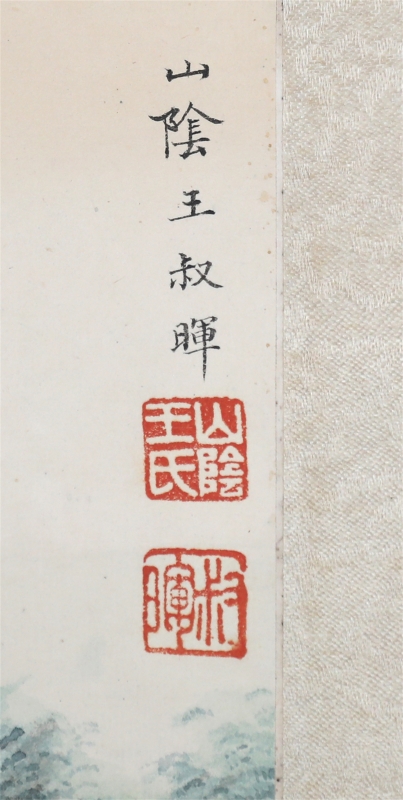 山陰王叔暉
山陰
王氏
叔暉